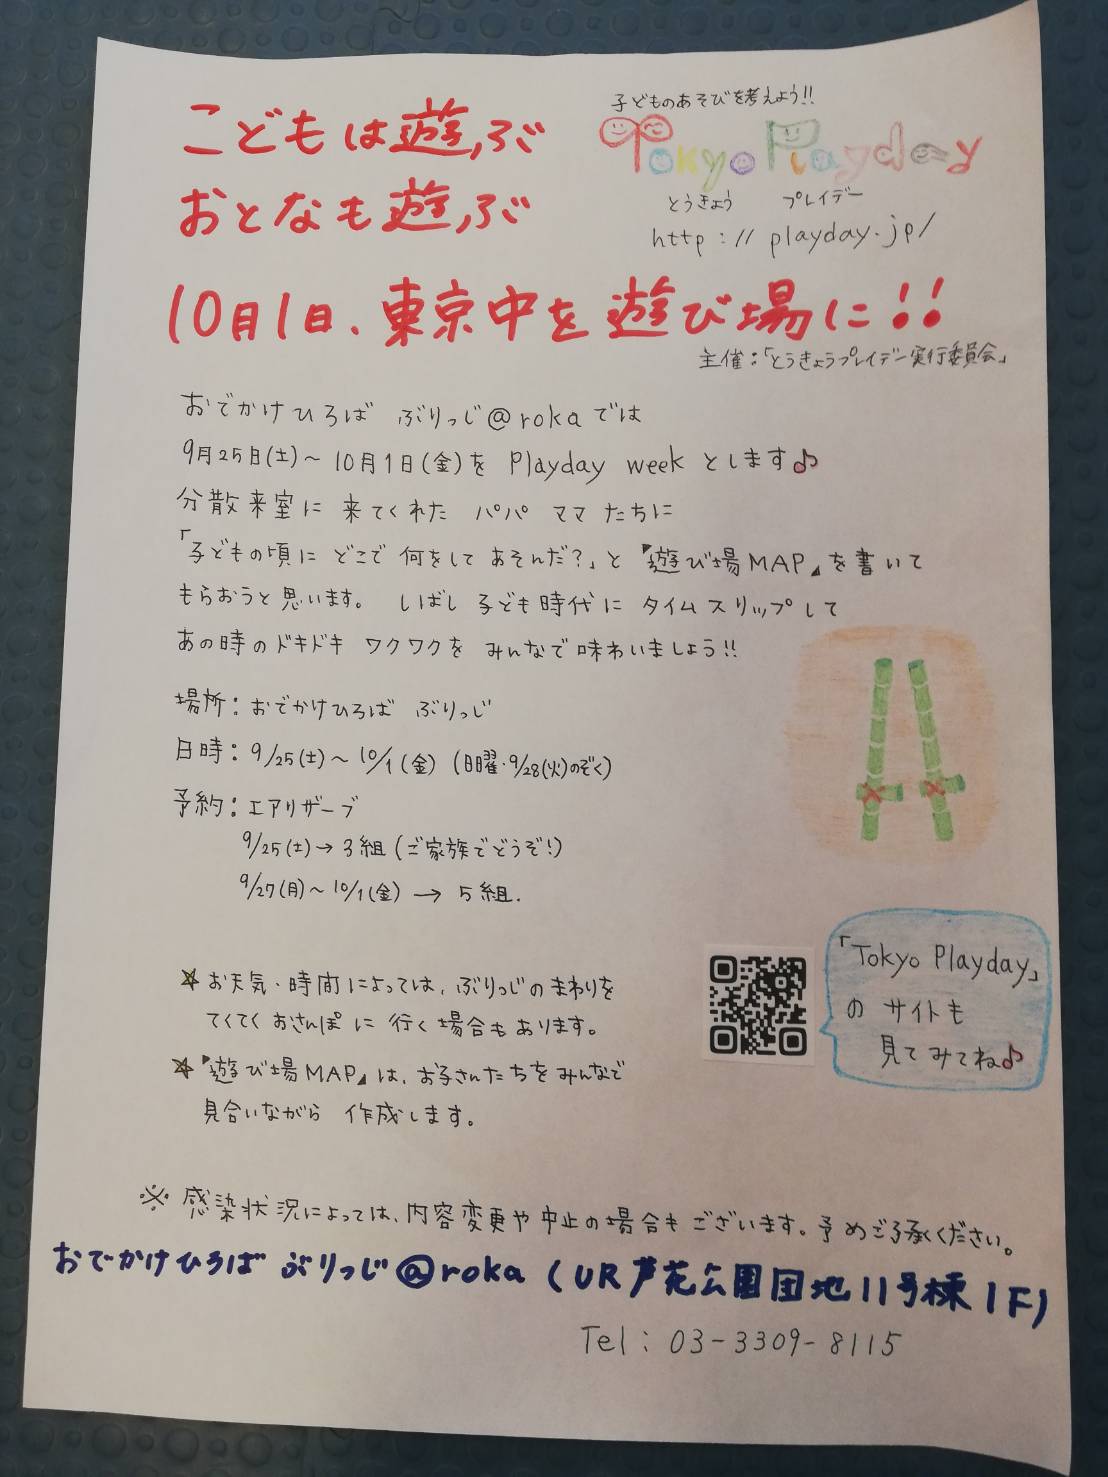 こどもは遊ぶ
おとなも遊ぶ
子どものあそびを考えよう!!
Tokyo Playday
とうきょう プレイデー
http://playday.jp/
10月1日、東京中を遊び場に!!
主催:「とうきょうプレイデー実行委員会」
おでかけひろば ぶりっじ@rokaでは
9月25日(土)~10月1日(金)を Playday week とします♪
分散来室に来てくれた パパ ママ たちに
「子どもの頃に どこで 何をして あそんだ?」と『遊び場MAP』を書いて
もらおうと思います。 しばし 子ども時代に タイムスリップして
あの時のドキドキ ワクワクを みんなで味わいましょう!!
場所:おでかけひろば ぶりっじ
日時:9/25(土)~10/1(金)(日曜・9/28(火)のぞく)
予約:エアリザーブ
9/25(土)→3組(ご家族でどうぞ!)
9/27(月)~10/1(金)→5組.
☆お天気・時間によっては、ぶりっじのまわりを
てくてく おさんぽに 行く場合もあります。
☆『遊び場MAP』は、お子さんたちをみんなで
見合いながら 作成します。
「Tokyo Playday」
の サイトも
見てみてね♪
※感染状況によっては、内容変更や中止の場合もございます。予めご了承ください。
おでかけひろば ぶりっじ@roka(UR芦花公園団地11号棟1F)
Tel:03-3309-8115